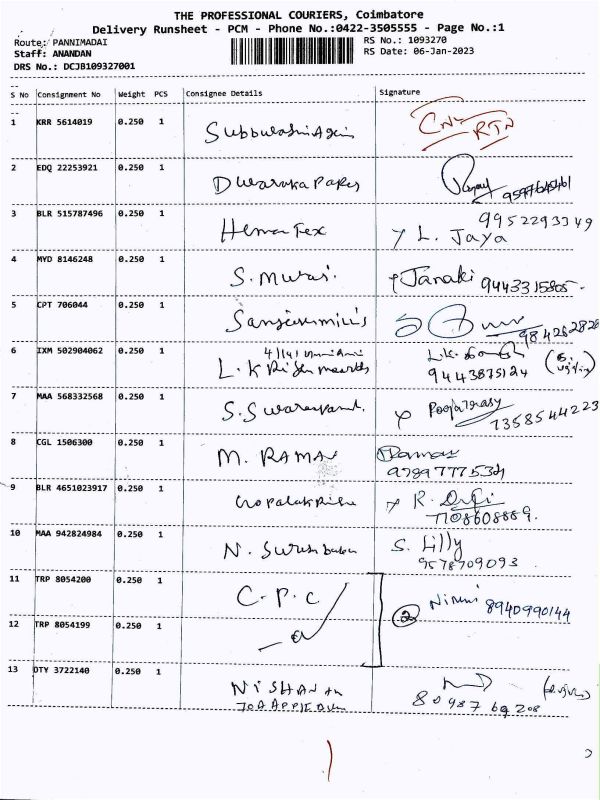 THE PROFESSIONAL COURIERS, Coimbatore
Delivery Runsheet - PCM - Phone No.:0422-3505555 - Page No.:1
Route: PANNIMADAI
RS No.: 1093270
Staff: ANANDAN
RS Date: 06-Jan-2023
DRS No.: DCJB109327001
S No Consignment No Weight PCS Consignee Details Signature
1 KRR 5614019 0.250 1 RTN
2 EDQ 22253921 0.250 1 Dwaraka
3 BLR 515787496 0.250 1 Hema Tex 9952293349
L. Jaya
4 MYD 8146248 0.250 1 S. Janaki
5 CPT 706044 0.250 1
6 IXM 502904062 0.250 1 L.K
9443875124
7 MAA 568332568 0.250 1 S.
7358544223
8 CGL 1506300 0.250 1 M. RAMAN
9 BLR 4651023917 0.250 1 R.
7708608889.
10 MAA 942824984 0.250 1 N. Suresh babu S. Lilly
9578709093
11 TRP 8054200 0.250 1 C.P.C 2 8940990144
12 TRP 8054199 0.250 1
13 DTY 3722140 0.250 1
8098769208